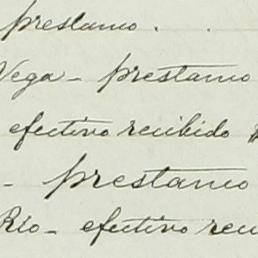 prestamo.
Vega - prestamo
efectivo recibido
- prestamo
Rio - efectivo reci